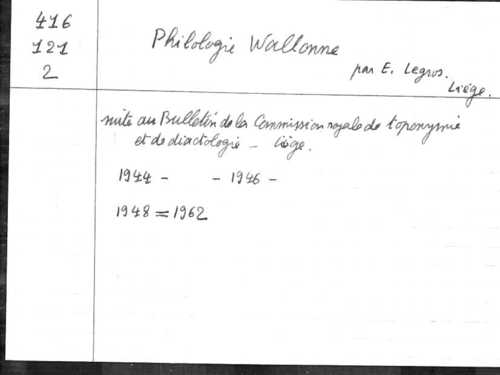 416
121
2
Philologie Wallonne
par E. Legros.
Liège.
suite au Bulletin de la Commission royale de toponymie
et de dialectologie – Liège.
1944 – – 1946 –
1948 = 1962